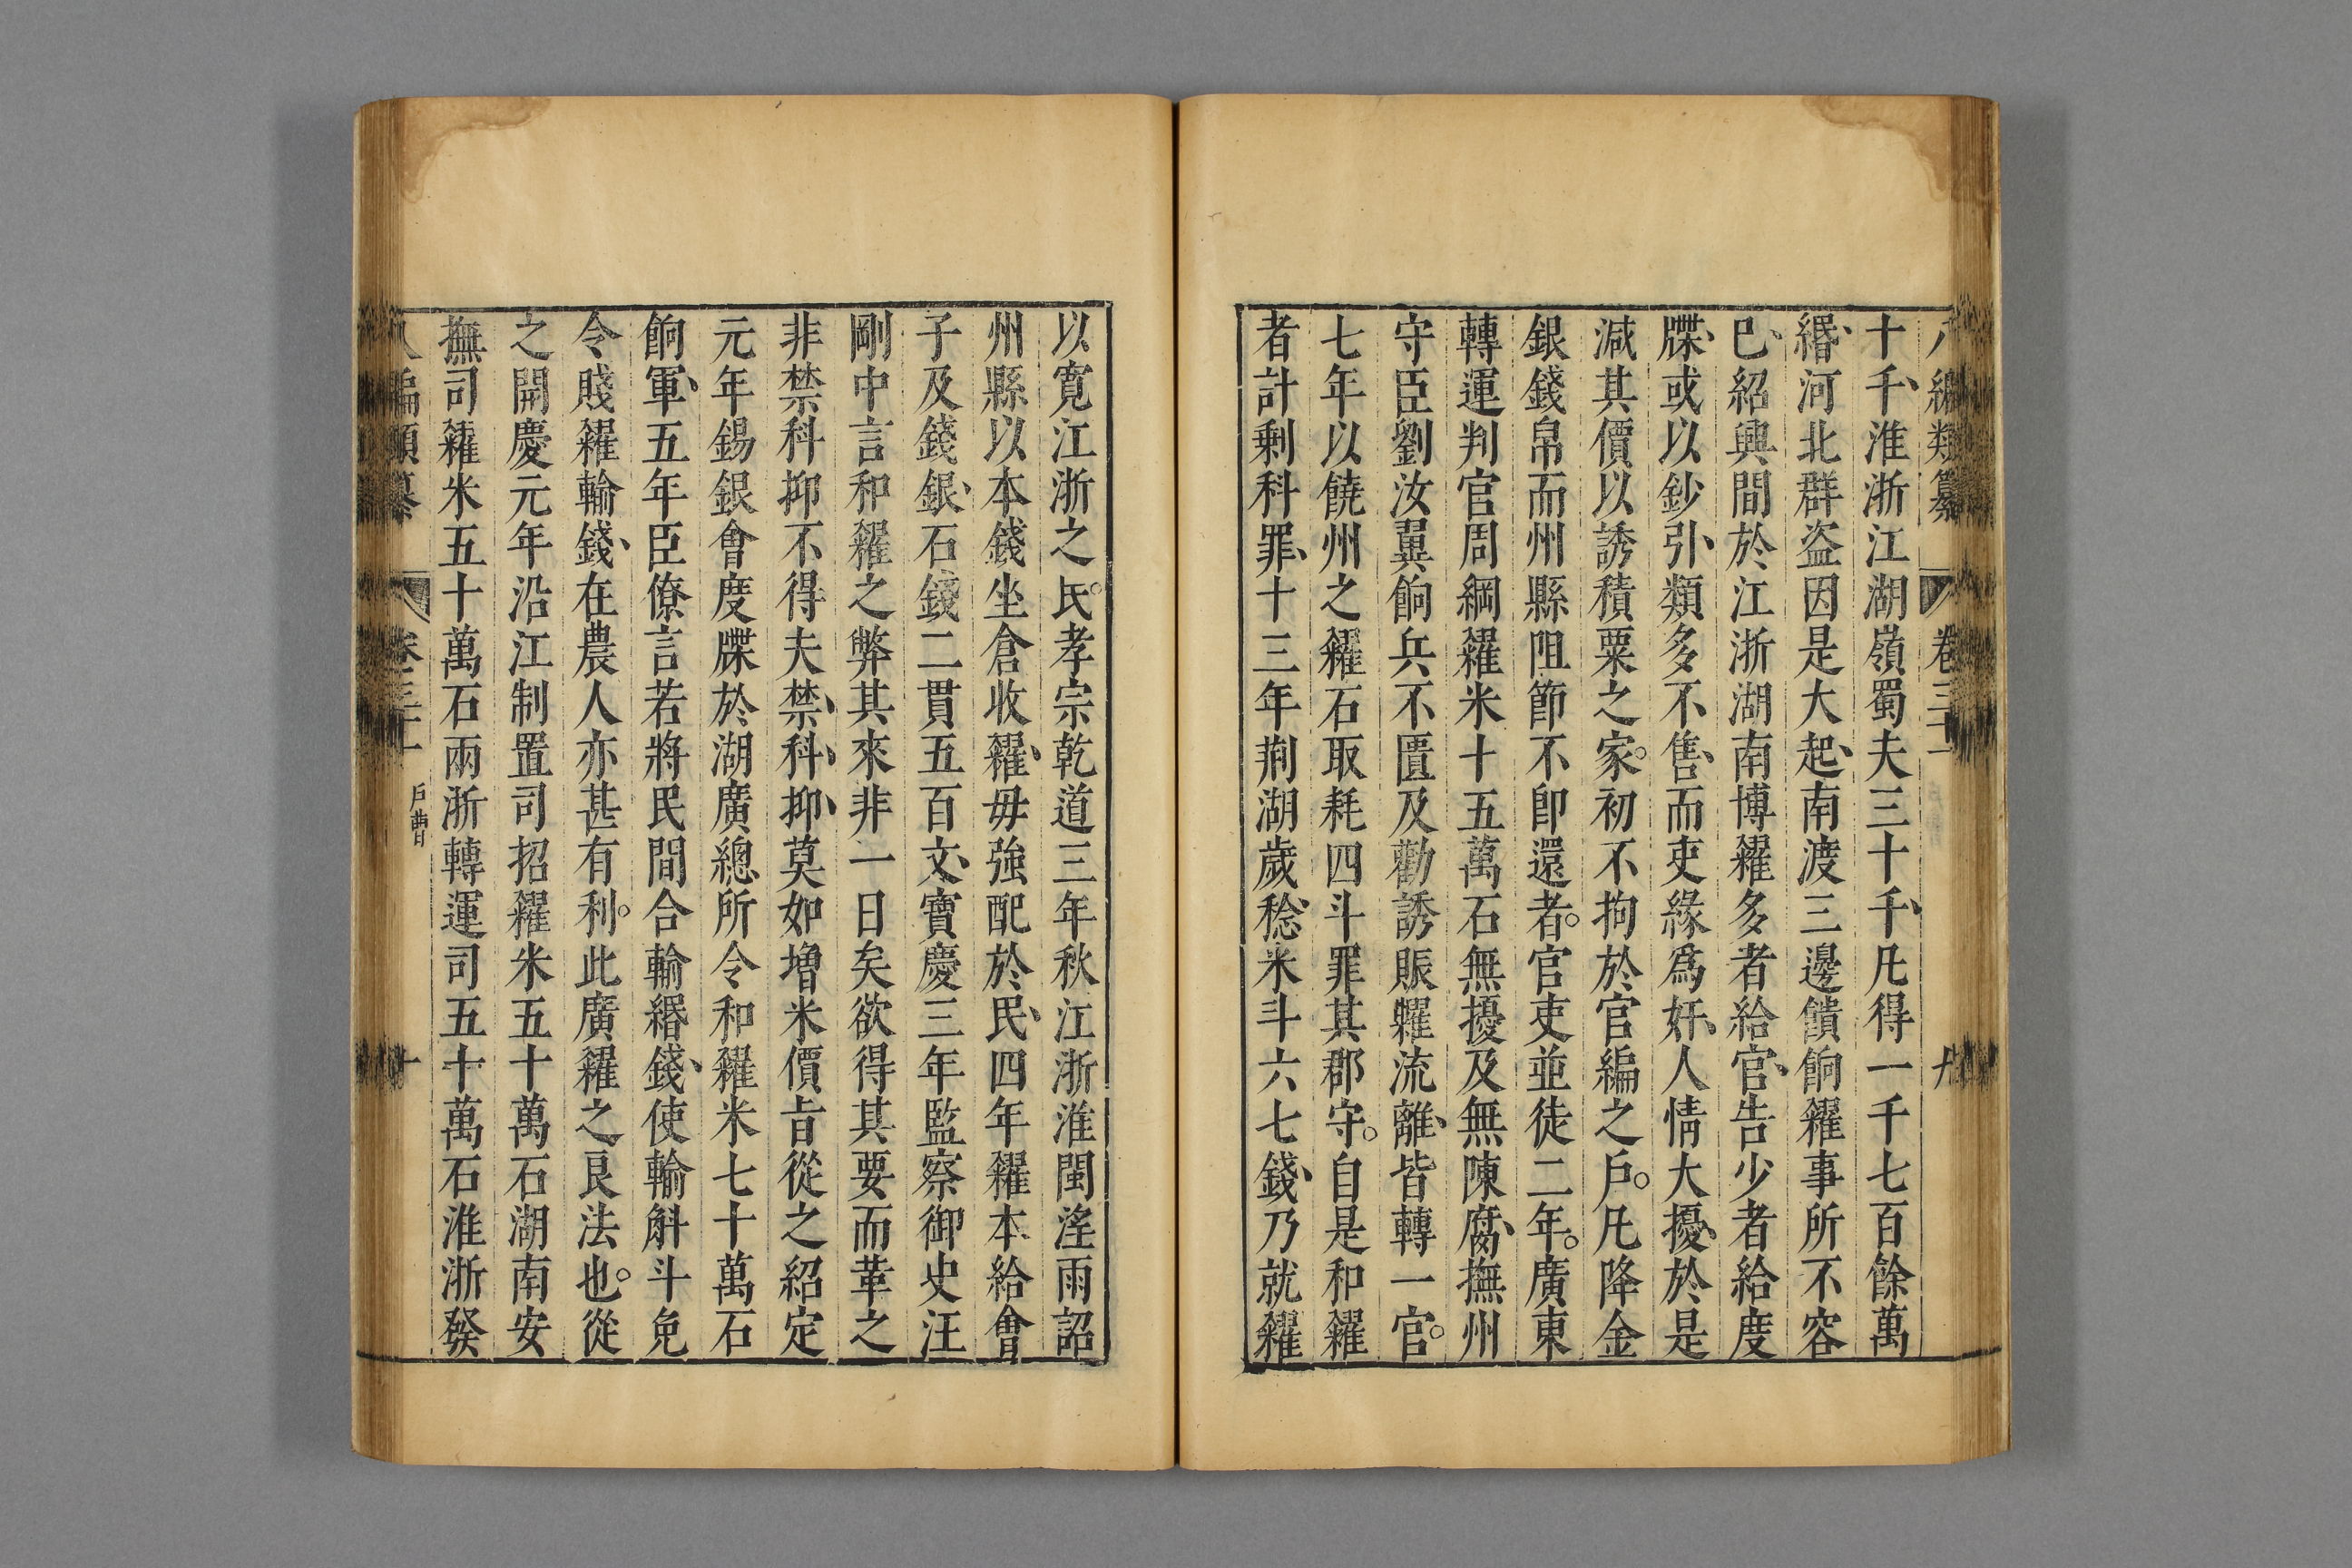 八編類纂 卷三十一 九
十千、淮浙江湖嶺蜀夫三十千、凡得一千七百餘萬
緡、河北群盜因是大起、南渡三邊饋餉糴事所不容
已、紹興間於江浙湖南博糴多者給官、告少者給度
牒、或以鈔引、類多不售、而吏緣爲奸、人情大擾、於是
減其價以誘積粟之家。初不拘於官編之戶。凡降金
銀錢帛而州縣阻節不即還者。官吏並徒二年。廣東
轉運判官周綱糴米十五萬石無擾及無陳腐、撫州
守臣劉汝翼餉兵不匱及勸誘賑糶流離、皆轉一官。
七年以饒州之糴石取耗四斗罪其郡守。自是和糴
者計剩科罪、十三年荊湖歲稔、米斗六七錢、乃就糴
以寬江浙之民。孝宗乾道三年秋江浙淮閩淫雨詔
州縣以本錢坐倉收糴、毋強配於民、四年糴本給會
子及錢銀、石錢二貫五百文、寶慶三年監察御史汪
剛中言和糴之弊其來非一日矣欲得其要而革之
非禁科抑不得夫禁、科、抑、莫如增米價旨從之紹定
元年錫銀會度牒於湖廣總所令和糴米七十萬石
餉軍、五年臣僚言若將民間合輸緡錢、使輸斛斗免
令賤糴輸錢、在農人亦甚有利。此廣糴之良法也。從
之開慶元年沿江制置司招糴米五十萬石湖南安
撫司糴米五十萬石兩浙轉運司五十萬石淮浙發
八編類纂 卷三十一 戶曹 十